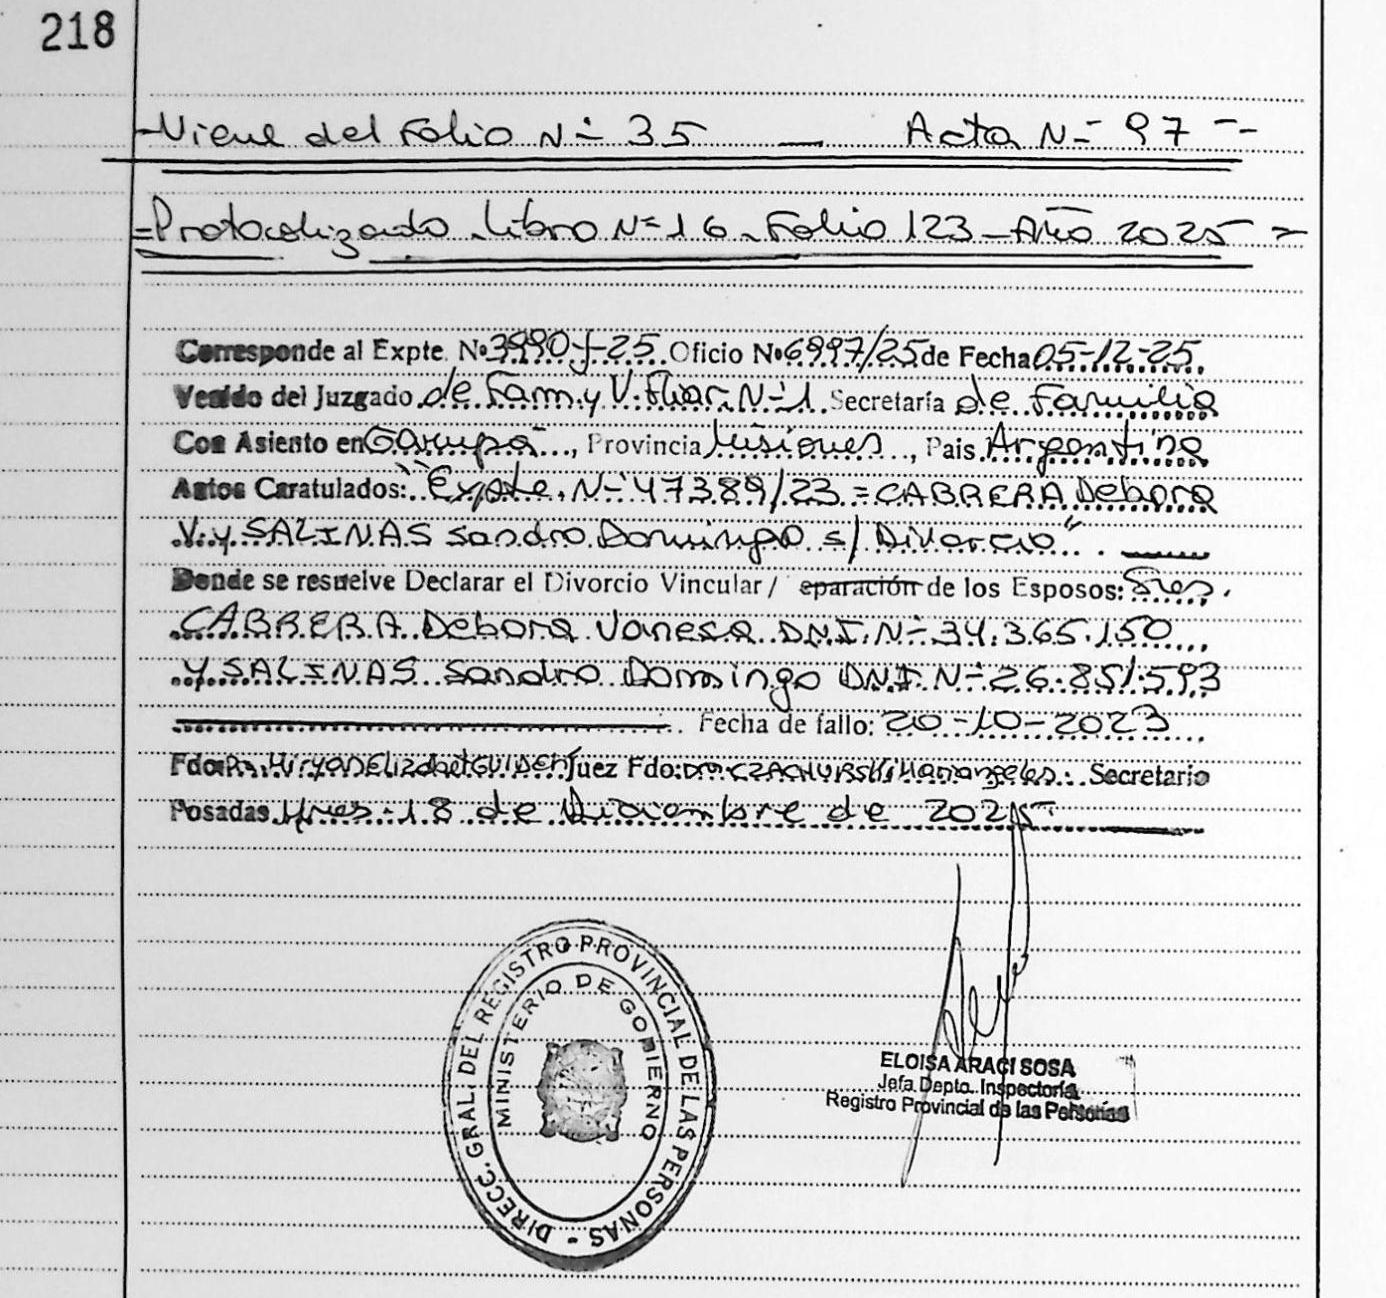 218
-Viene del Folio Nº 35 — Acta Nº 97 --
=Protocolizado Libro Nº 16 - Folio 123 - Año 2025 =
Corresponde al Expte. Nº 3990-J-25 Oficio Nº 6997/25 de Fecha 05-12-25
Venido del Juzgado de Fam. y V. Fliar. Nº 1 Secretaría de Familia
Con Asiento en Garupá, Provincia Misiones, Pais Argentina
Autos Caratulados: "Expte. Nº 47389/23 = CABRERA Debora
V. y SALINAS Sandro Domingo s/ Divorcio". —
Donde se resuelve Declarar el Divorcio Vincular / eparación de los Esposos: Sres.
CABRERA Debora Vanesa D.N.I. Nº 34.365.150
y SALINAS Sandro Domingo D.N.I. Nº 26.851.593
Fecha de fallo: 20-10-2023
Fdo: Juez Fdo: Dra. CZACHURSKI Mariangeles. Secretario
Posadas, Mnes. 18 de Diciembre de 2025-
DIRECC. GRAL. DEL REGISTRO PROVINCIAL DE LAS PERSONAS -
MINISTERIO DE GOBIERNO
ELOISA ARACI SOSA
Jefa Depto. Inspectoría
Registro Provincial de las Personas